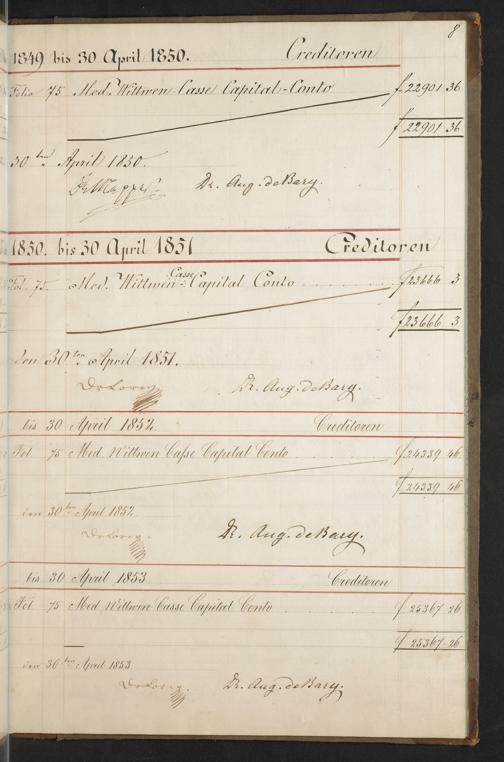 8
1849 bis 30 April 1850. Creditoren
Folio 75 Med. Wittwen Casse Capital-Conto f 22901 36
f 22901 36
30ten April 1850.
Dr Mappes. Dr. Aug. de Bary.
1850. bis 30 April 1851 Creditoren
Fol. 75. Med. Wittwen-Casse Capital Conto f 23666 3
f 23666 3
den 30ten April 1851.
Dr. Aug. de Bary.
bis 30 April 1852. Creditoren
Fol. 75 Med. Wittwen Casse Capital Conto f 24339 46
f 24339 46
den 30ten April 1852
Dr. Aug. de Bary.
bis 30 April 1853 Creditoren
Fol 75 Med. Wittwen Casse Capital Conto f 25367 26
f 25367 26
den 30ten April 1853
Dr. Aug. de Bary.